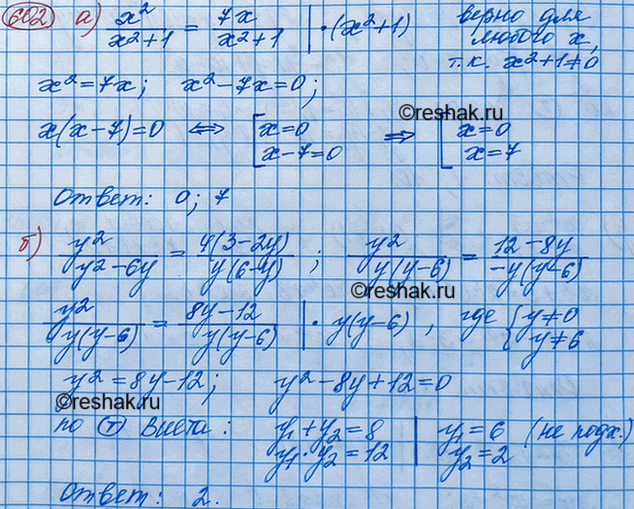 602 а) x²/(x²+1) = 7x/(x²+1) | · (x²+1) верно для
любого x,
т.к. x²+1≠0
x² = 7x; x² - 7x = 0;
©reshak.ru
x(x-7)=0 ⟺ [ x=0 ⟹ [ x=0
x-7=0 x=7
Ответ: 0; 7
б) y²/(y²-6y) = 4(3-2y)/(y(6-y)) ; y²/(y(y-6)) = (12-8y)/(-y(y-6))
©reshak.ru
y²/(y(y-6)) = (8y-12)/(y(y-6)) | · y(y-6) , где { y≠0
y≠6
y² = 8y-12; y² - 8y + 12 = 0
©reshak.ru
по (т) Виета: y₁ + y₂ = 8 | y₁ = 6 (не подх.)
y₁ · y₂ = 12 | y₂ = 2
Ответ: 2.